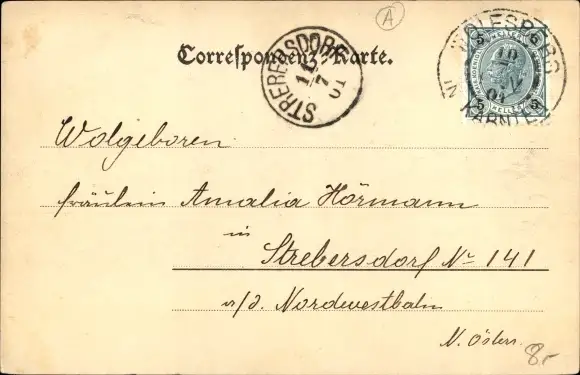 A
Correspondenz-Karte.
STREBERSDORF
11/7
01
WOLFSBERG
10 7 01
IN KÄRNTEN
5 5
5 5
HELLER
Wolgeboren
fräulein Amalia Hörmann
in
Strebersdorf No 141
a/d. Nordwestbahn
N. Österr.
8,-